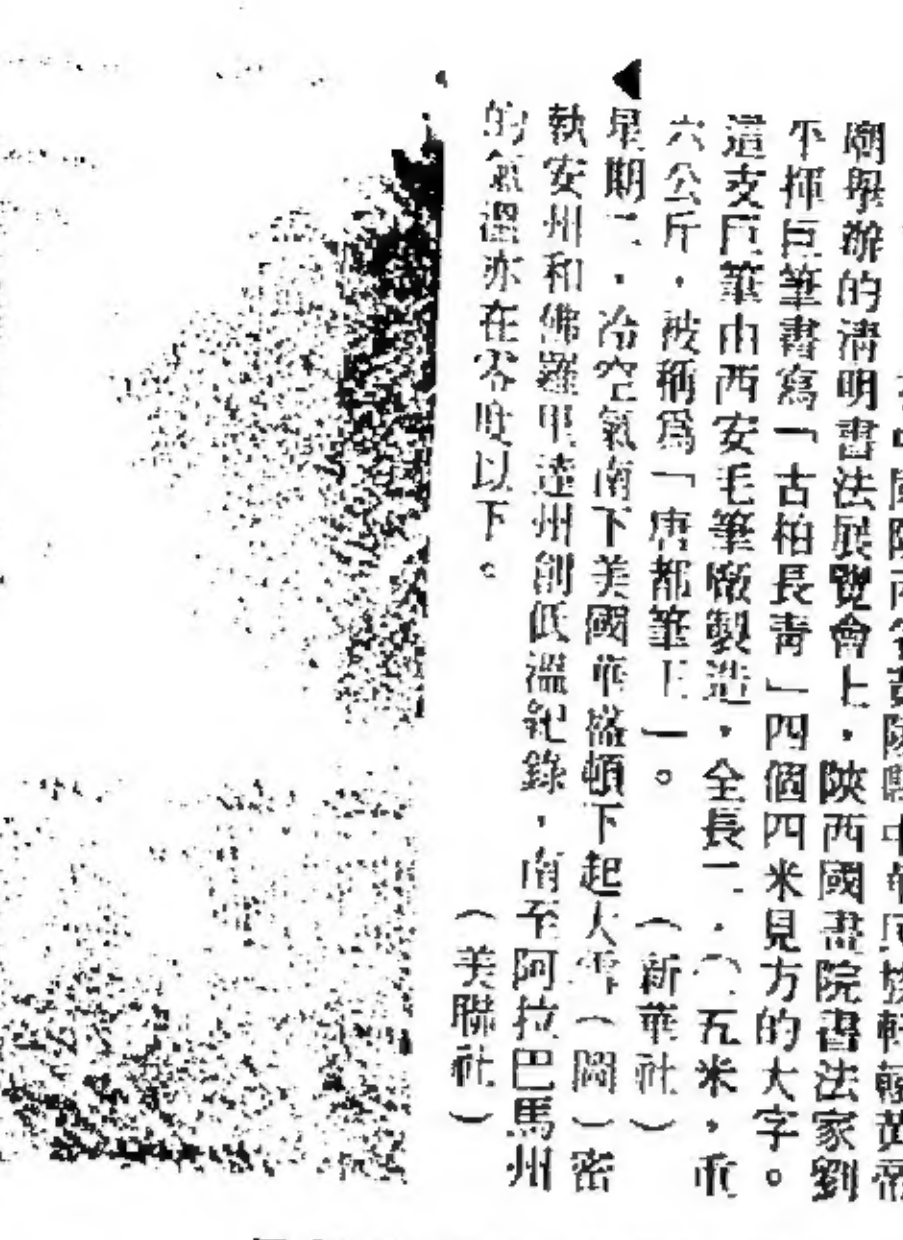 中國陝西省黃陵縣中華民族軒轅黃帝
廟舉辦的清明書法展覽會上，陝西國畫院書法家劉
不揮巨筆書寫「古柏長青」四個四米見方的大字。
這支巨筆由西安毛筆廠製造，全長二．〇五米，重
六公斤，被稱爲「唐都筆王」。（新華社）
◀星期二，冷空氣南下美國華盛頓下起大雪（圖）密
執安州和佛羅里達州創低溫紀錄，南至阿拉巴馬州
的氣溫亦在零度以下。（美聯社）